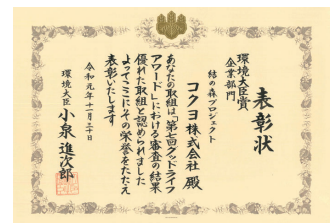 表彰状
環境大臣賞
企業部門
結の森プロジェクト
コクヨ株式会社 殿
あなたの取組は、第七回グッドライフ
アワードにおける審査の結果
優れた取組と認められました
よってここにその栄誉をたたえ
表彰いたします
令和元年十一月三十日
環境大臣 小泉 進次郎